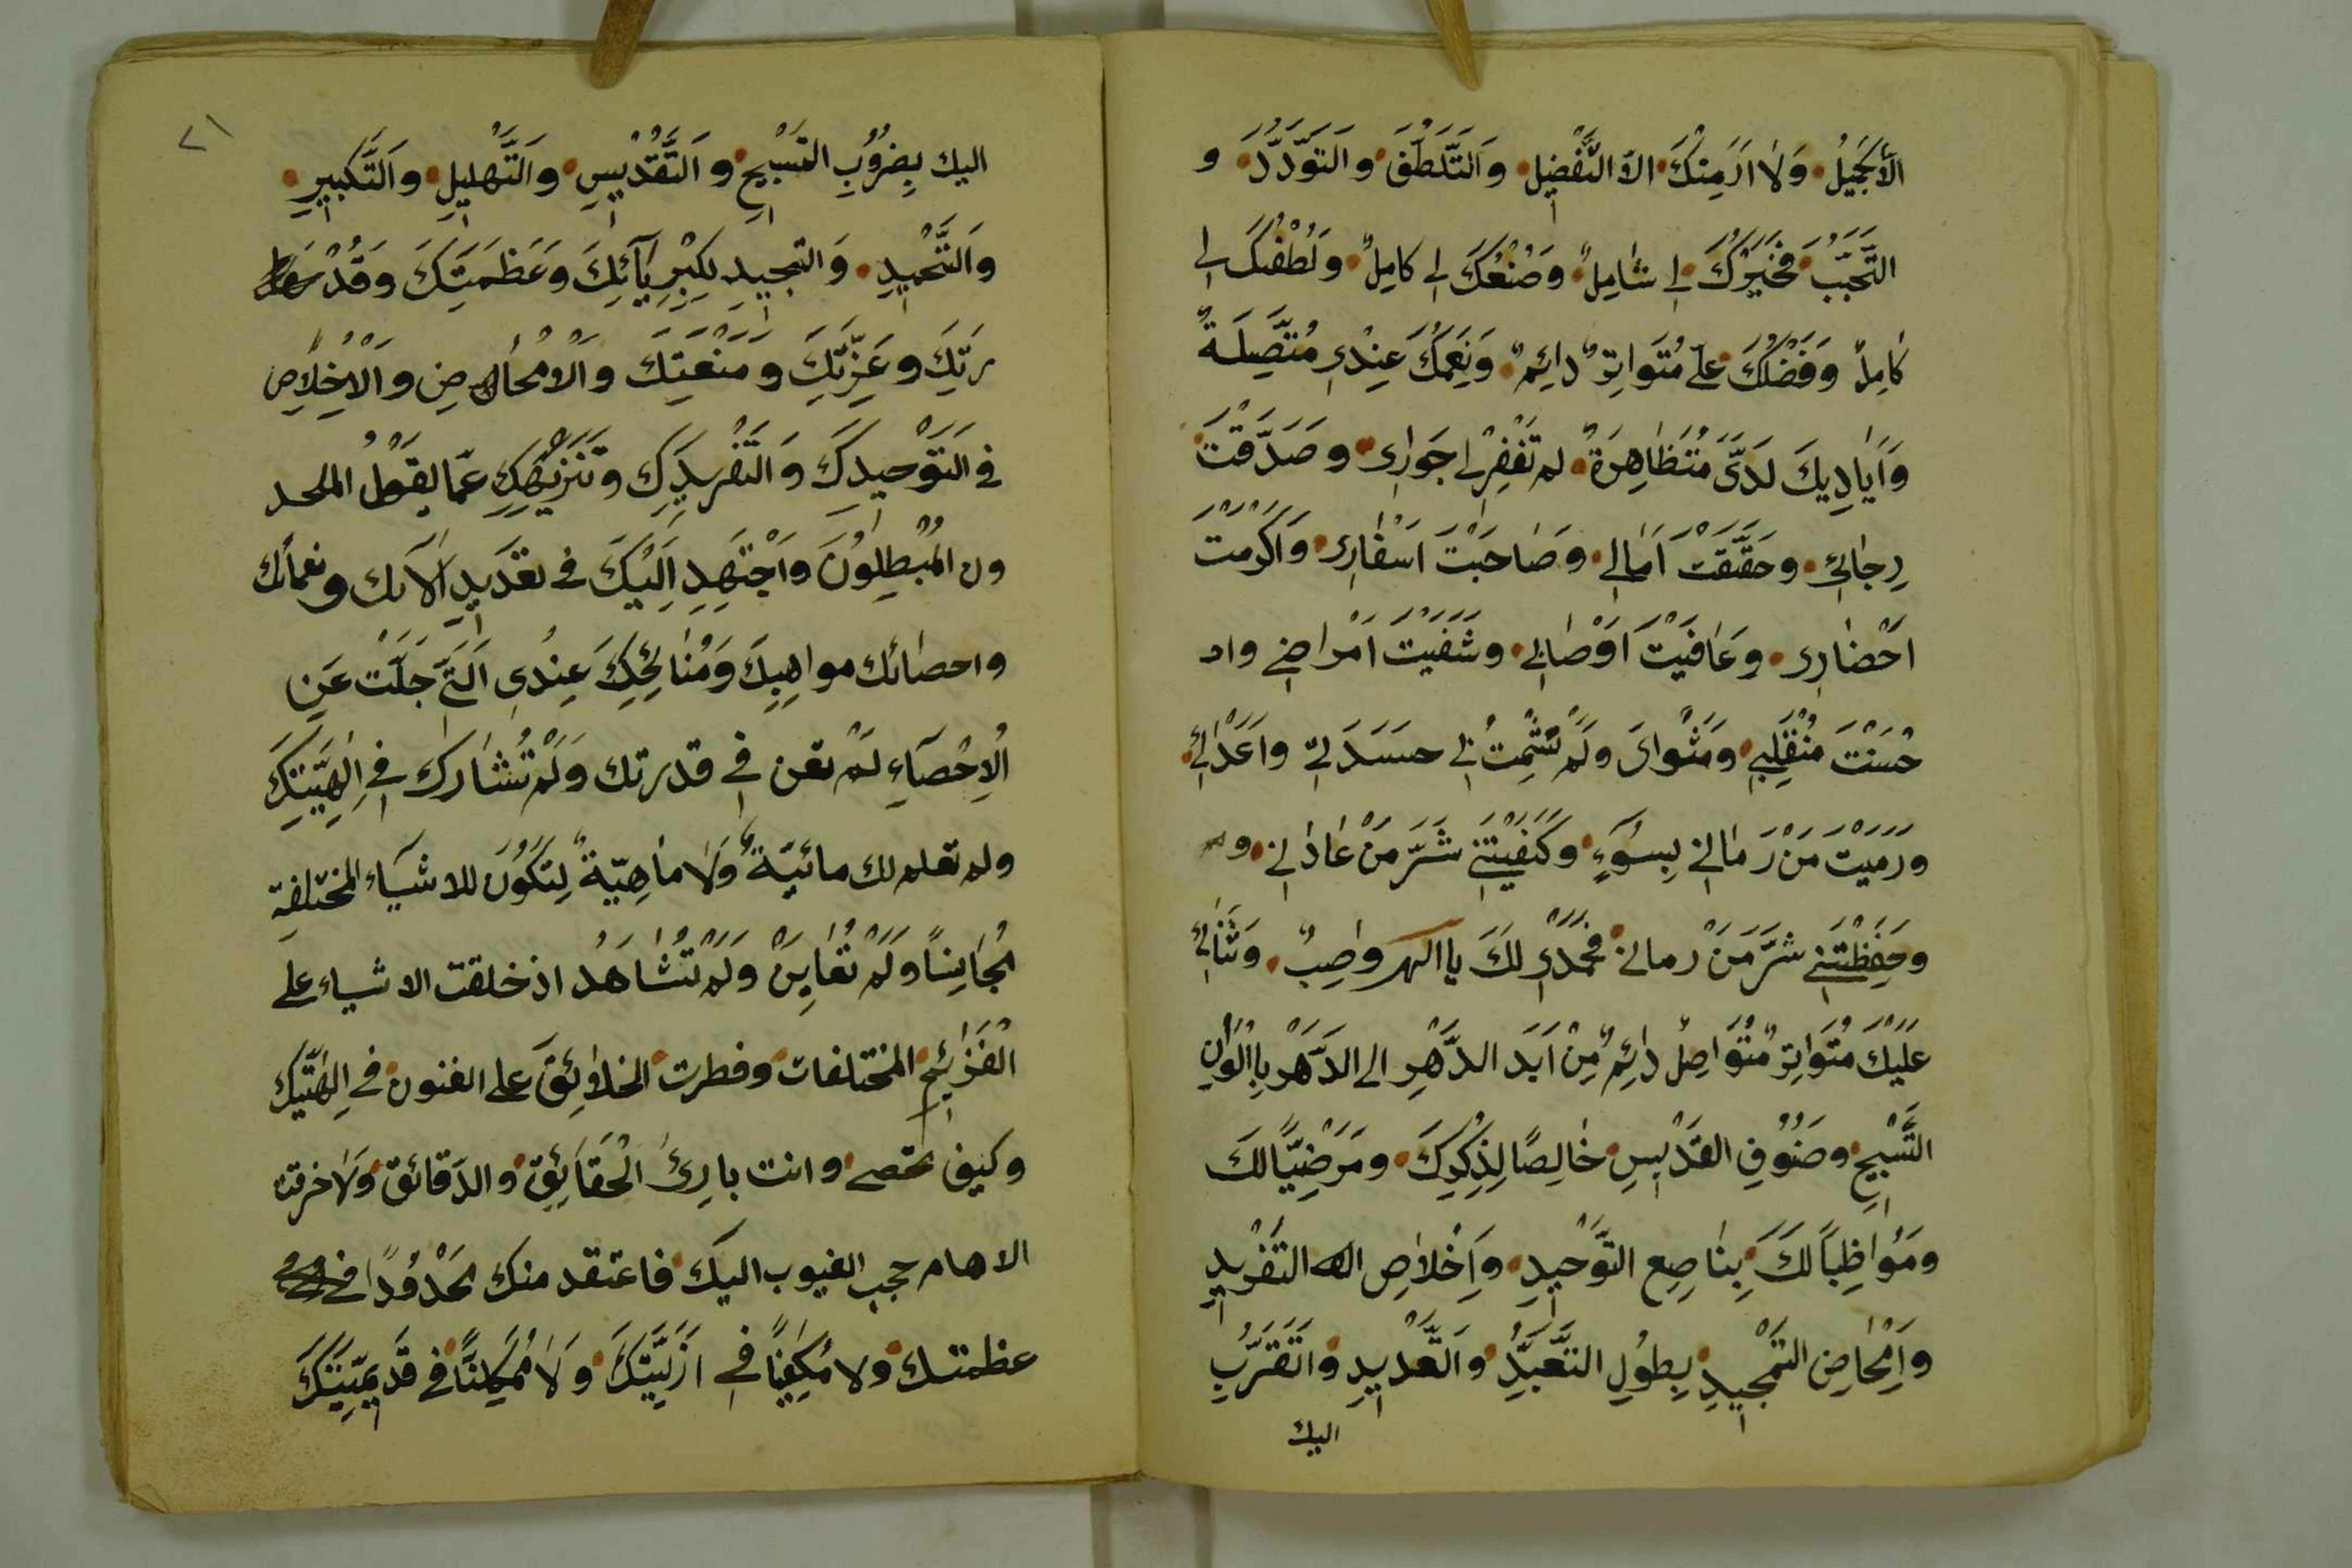 الّا الجَمِيلُ وَلَا اَرَ مِنْكَ الّا التَّفْضِيلِ وَالتَّلَطُّفَ وَالتَوَدُّدَ و
التَّحَبُّبَ فَخَيْرُكَ لِي شَامِلٌ وَصُنْعُكَ لِي كامِلٌ وَلُطْفُكَ لِي
كَامِلٌ وَفَضْلُكَ عَلَيَّ مُتَوَاتِرٌ دائِمٌ وَنِعَمُكَ عِنْدِي مُتَّصِلَةٌ
وَاَيَادِيكَ لَدَيَّ مُتَظَاهِرَةٌ لم تَخْفِرْ لِي جِوَارِي وصَدَّقْتَ
رِجَائِي وحَقَّقْتَ اَمَالِي وصَاحَبْتَ اَسْفَارِي وَاَكْرَمْتَ
اَحْضَارِي وعَافَيْتَ اَوْصَالِي وشَفَيْتَ اَمْرَاضِي وا
حْسَنْتَ مُنْقَلَبِي ومَثْوَايَ ولَمْ تُشْمِتْ بِي حسدَائِي واَعْدَائِي
ورَمَيْتَ مَنْ رَمَانِي بِسُوءٍ وكَفَيْتَنِي شَرَّ مَنْ عَادَانِي
وحَفِظْتَنِي شَرَّ مَنْ رمانى فَحَمْدِي لَكَ يا الهى واصِبٌ وَثَنَائِي
عَلَيْكَ مُتَوَاتِرٌ مُتَوَاصِلٌ دَائِمٌ مِنْ اَبَدِ الدَّهْرِ الى الدَّهْرِ بِاَلْوَانِ
التَّسْبِيحِ وصُنُوفِ القَدْيسِ خَالِصًا لِذِكْرِكَ ومَرْضِيًّا لَكَ
ومُوَاظِبًا لَكَ بِنَاصِعِ التَّوْحِيدِ وَاِخْلَاصِ التَّفْرِيدِ
وَاِمْحَاضِ التَّمْجِيدِ بِطُولِ التَّعَبُّدِ وَالتَّعْدِيدِ وَالتَّقَرُّبِ
اليك
٢١
اليك بِضُرُوبِ التَّسْبِيحِ وَالتَّقْدِيسِ وَالتَّهْلِيلِ وَالتَّكْبِيرِ
وَالتَّحْمِيدِ وَالتَّمْجِيدِ لِكِبْرِيَآئِكَ وَعَظَمَتِكَ وَقُدْ
رَتِكَ وعِزَّتِكَ ومَنْعَتِكَ وَالْاِمْحَاضِ وَالْاِخْلَاصِ
فى التَّوْحِيدِكَ وَالتَّفْرِيدِكَ وتَنْزِيهِكَ عَمّا يَقُولُ الملحد
ون الْمُبْطِلُونَ وَاَجْتَهِدِ اِلَيْكَ فى تعْدَيدِ اٰلَآئك ونعمائك
واحصائك مواهِبِكَ وَمَنَائِحِكَ عِنْدِي الَّتِي جَلَّتْ عَنِ
الْاِحْصَآءِ لَمْ تعن فِي قدرتك وَلَمْ تُشَارَكْ فِي اِلٰهِيَّتِكَ
ولم تعلم لك مائيّة وَلَا مَاهِيّةٌ لِتَكُونَ للاشيَاء المختلفة
مُجَانِسًا وَلَمْ تُعَايَنْ وَلَمْ تُشَاهَدْ اذ خلقت الاشياء على
الغَرَائِزِ المختلفات وفطرت الخلَائِقَ على الفنون في اِلٰهِيَّتِكَ
وكيف تحصى وانت بارِئُ الْحَقَائِقِ والدّقائق وَلَا خرقت
الاهام حجب الغيوب اليكَ فاعتقد منك مَحْدُودًا في
عظمتك ولا مُكَيَّفًا في ازَلِيَّتِكَ وَلَا مُمْكِنًا في قَدِيمِيَّتِكَ